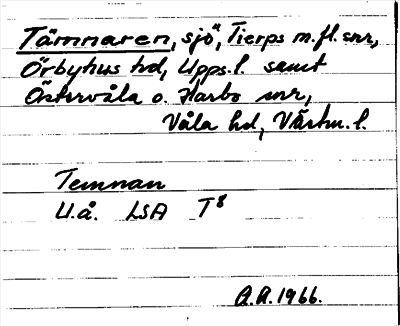 Tämnaren, sjö", Tierps m.fl. snr,
Örbyhus hd, Upps. l. samt
Östervåla o. Harbo snr,
Våla hd, Västm. l.
Temnan
U.å. LSA T8
A.A. 1966.